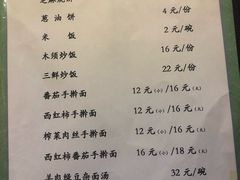 葱油饼 4元/份
米饭 2元/碗
木须炒饭 16元/份
三鲜炒饭 22元/份
番茄手擀面 12元(小)/16元(大)
西红柿手擀面 12元(小)/16元(大)
榨菜肉丝手擀面 12元(小)/16元(大)
西红柿番茄手擀面 16元(小)/18元(大)
羊肉绿豆杂面汤 32元/碗